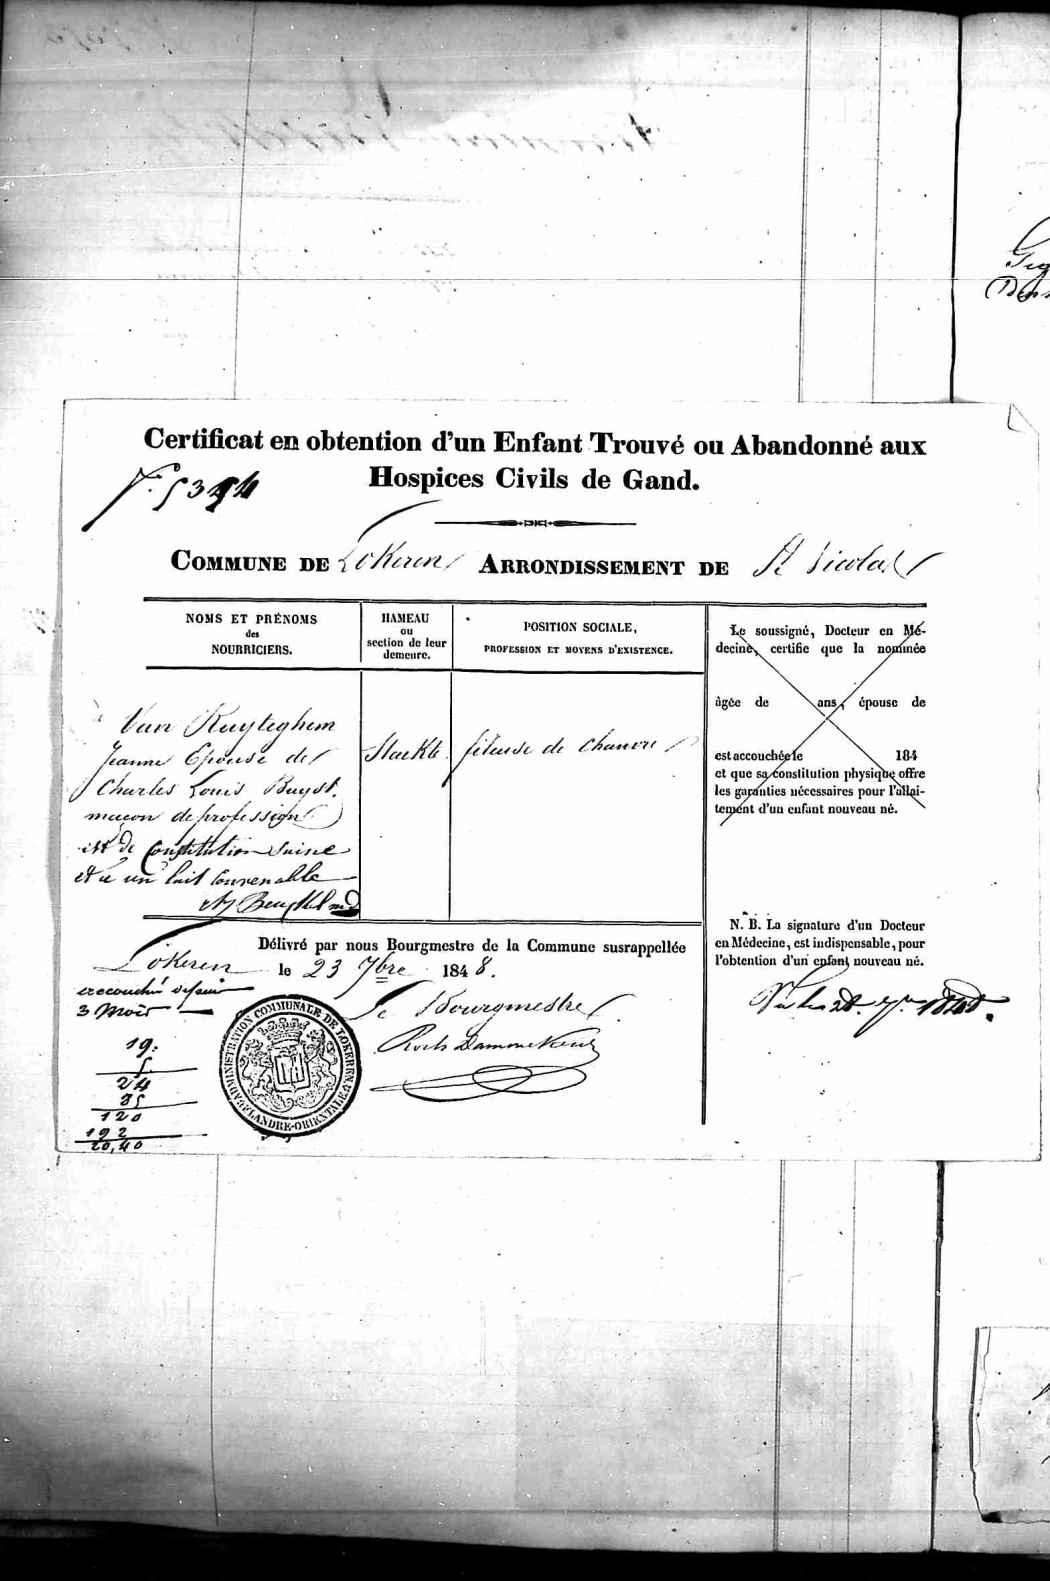 Certificat en obtention d'un Enfant Trouvé ou Abandonné aux
Hospices Civils de Gand.
COMMUNE DE Lokeren ARRONDISSEMENT DE St Nicolas
NOMS ET PRÉNOMS
des
NOURRICIERS.
HAMEAU
ou
section de leur
demeure.
POSITION SOCIALE,
PROFESSION ET MOYENS D'EXISTENCE.
Van Ruyteghem
Jeanne Epouse de
Charles Louis Buyst.
maçon de profession
est de Constitution saine
et a un lait convenable
Staekte
fileuse de chanvre
Le soussigné, Docteur en Mé-
decine, certifie que la nommée
âgée de ans, épouse de
est accouchée le 184
et que sa constitution physique offre
les garanties nécessaires pour l'allai-
tement d'un enfant nouveau né.
N. B. La signature d'un Docteur
en Médecine, est indispensable, pour
l'obtention d'un enfant nouveau né.
28 1848.
Délivré par nous Bourgmestre de la Commune susrappellée
Lokeren le 23 7bre 1848.
accouchée depuis
3 Mois
Le Bourgmestre
ADMINISTRATION COMMUNALE DE LOKEREN
FLANDRE-ORIENTALE
19.
5
24
95
120
192
20,40